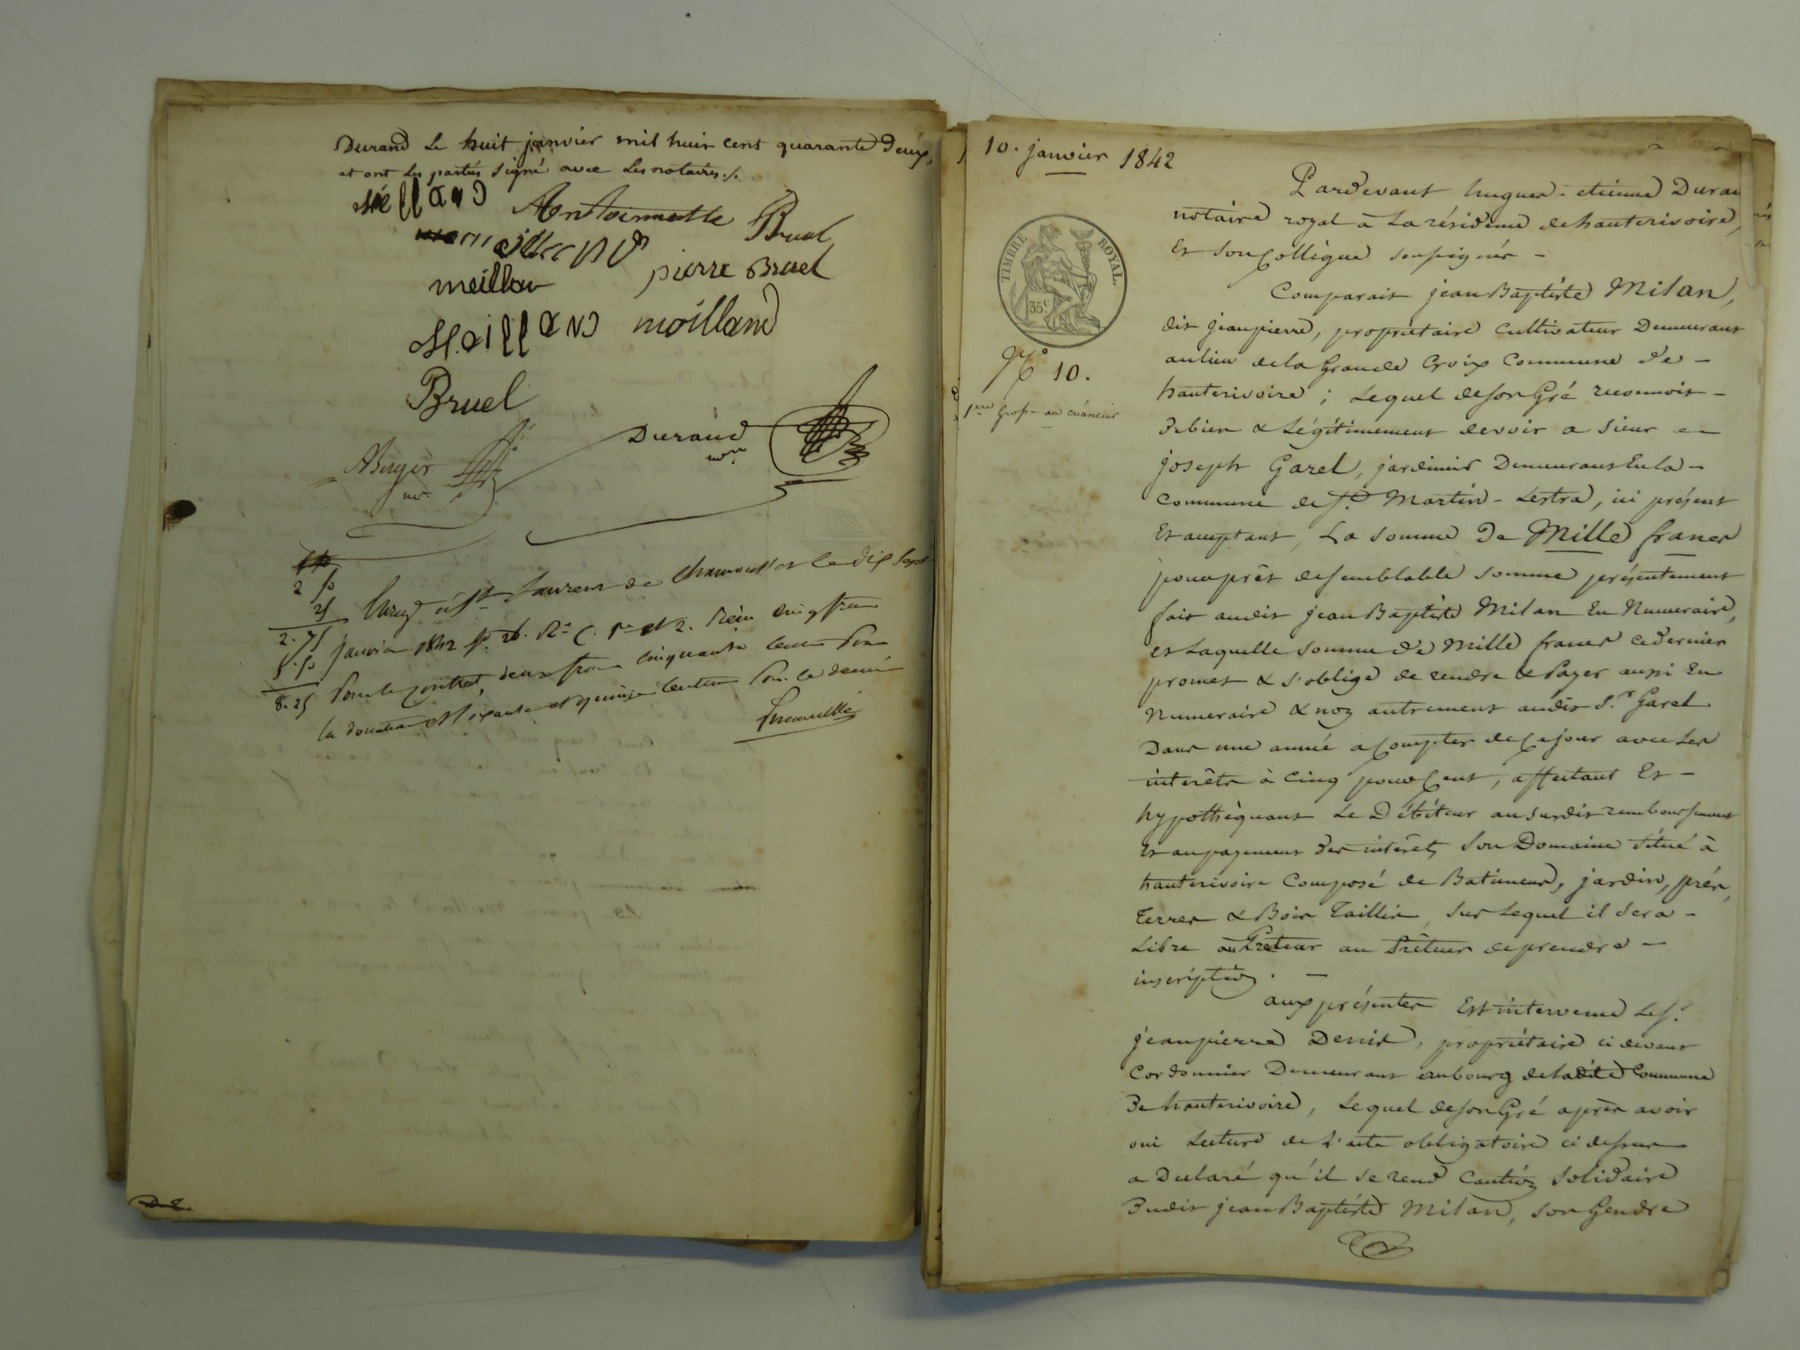 Durand le huit janvier mil huit cent quarante deux,
et ont les parties signé avec les notaires./.
Méilland Antoinette Bruel
meilland
meillan pierre Bruel
Meilland moilland
Bruel
Durand
nre
ABerger
nre
2 50
25
2.75
5.50
8.25
Enreg à St Laurent de Chamousset le dix sept
janvier 1842 fo. 26. Ro C. 1re et 2. Reçu cinq francs
Pour le contrat, deux francs cinquante cent Pour
la donation et soixante et quinze centimes Pour le décime
10. janvier 1842
TIMBRE ROYAL.
35c
No 10.
1ere Grosse au créancier
Pardevant hugues-etienne Duran
notaire royal à La résidence de hauterivoire,
et son Collègue soussignés -
Comparait jean Baptiste Milan,
dit jeanpierre, propriétaire cultivateur Demeurant
au lieu de la Grande Croix Commune de -
hauterivoire ; Lequel de son Gré reconnoit -
Bebien & Légitimement devoir a sieur -
joseph Garel, jardinier Demeurant En la -
Commune de St. Martin-Lestra, ici présent
Et acceptant, La somme De Mille francs
pour prêt de semblable somme présentement
fait audit jean Baptiste Milan En Numeraire,
et Laquelle somme De Mille francs ce dernier
promet & s'oblige de rendre & Payer aussi En
Numeraire & non autrement audit Sr. Garel
Dans une année a Compter de Ce jour avec Les
interêts à Cinq pour Cent, affectant Et -
hypothèquant Le Débiteur au susdit remboursement
Et au payement des intérêts Son Domaine situé à
hauterivoire Composé de Batiments, jardin, prés,
Terres & Bois Taillis, sur Lequel il sera -
Libre au Preteur au Prêteur de prendre -
inscription. -
aux présentes Est intervenu Le Sr.
jeanpierre Denis, propriétaire ci devant
Cordonnier Demeurant au bourg de ladite Commune
De hauterivoire, Lequel de son Gré après avoir
oui Lecture de L'acte obligatoire ci dessus
a Déclaré qu'il se rend Caution solidaire
Dudit jean Baptiste Milan, son Gendre